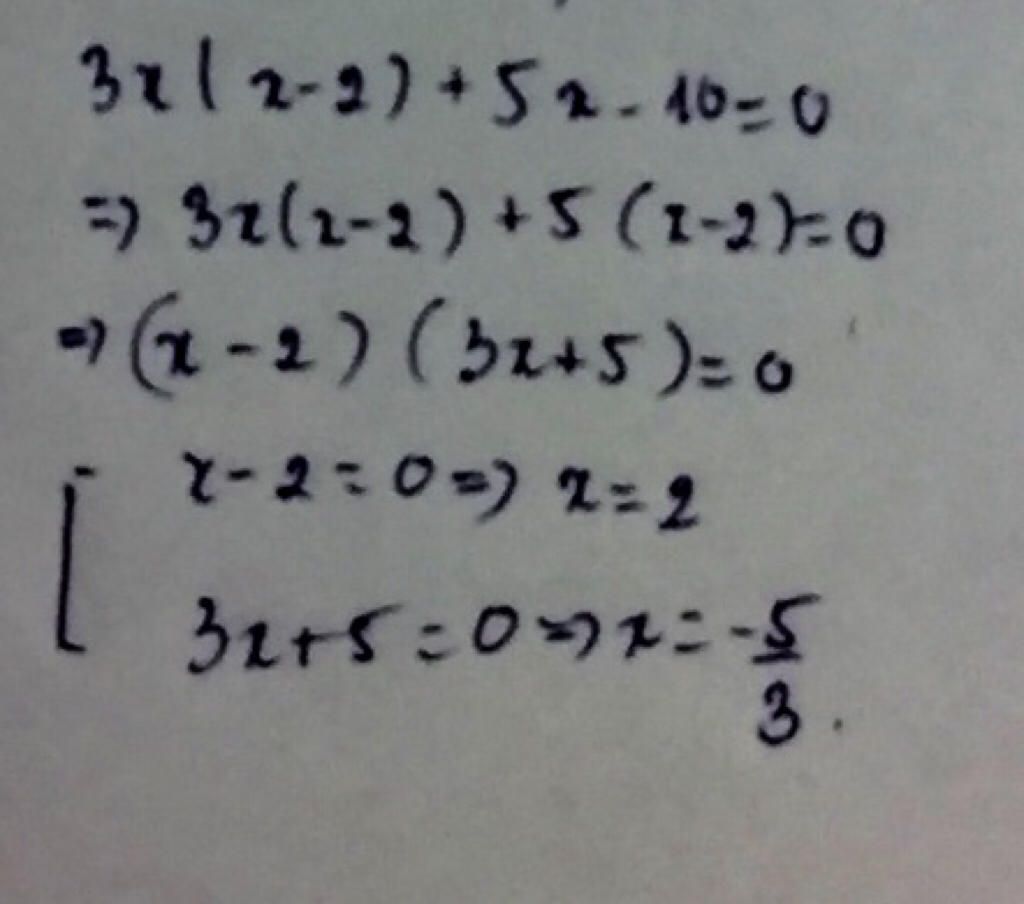 3x(x-2)+5x-10=0
=> 3x(x-2)+5(x-2)=0
=> (x-2)(3x+5)=0
[ x-2=0 => x=2
3x+5=0 => x=-5/3.